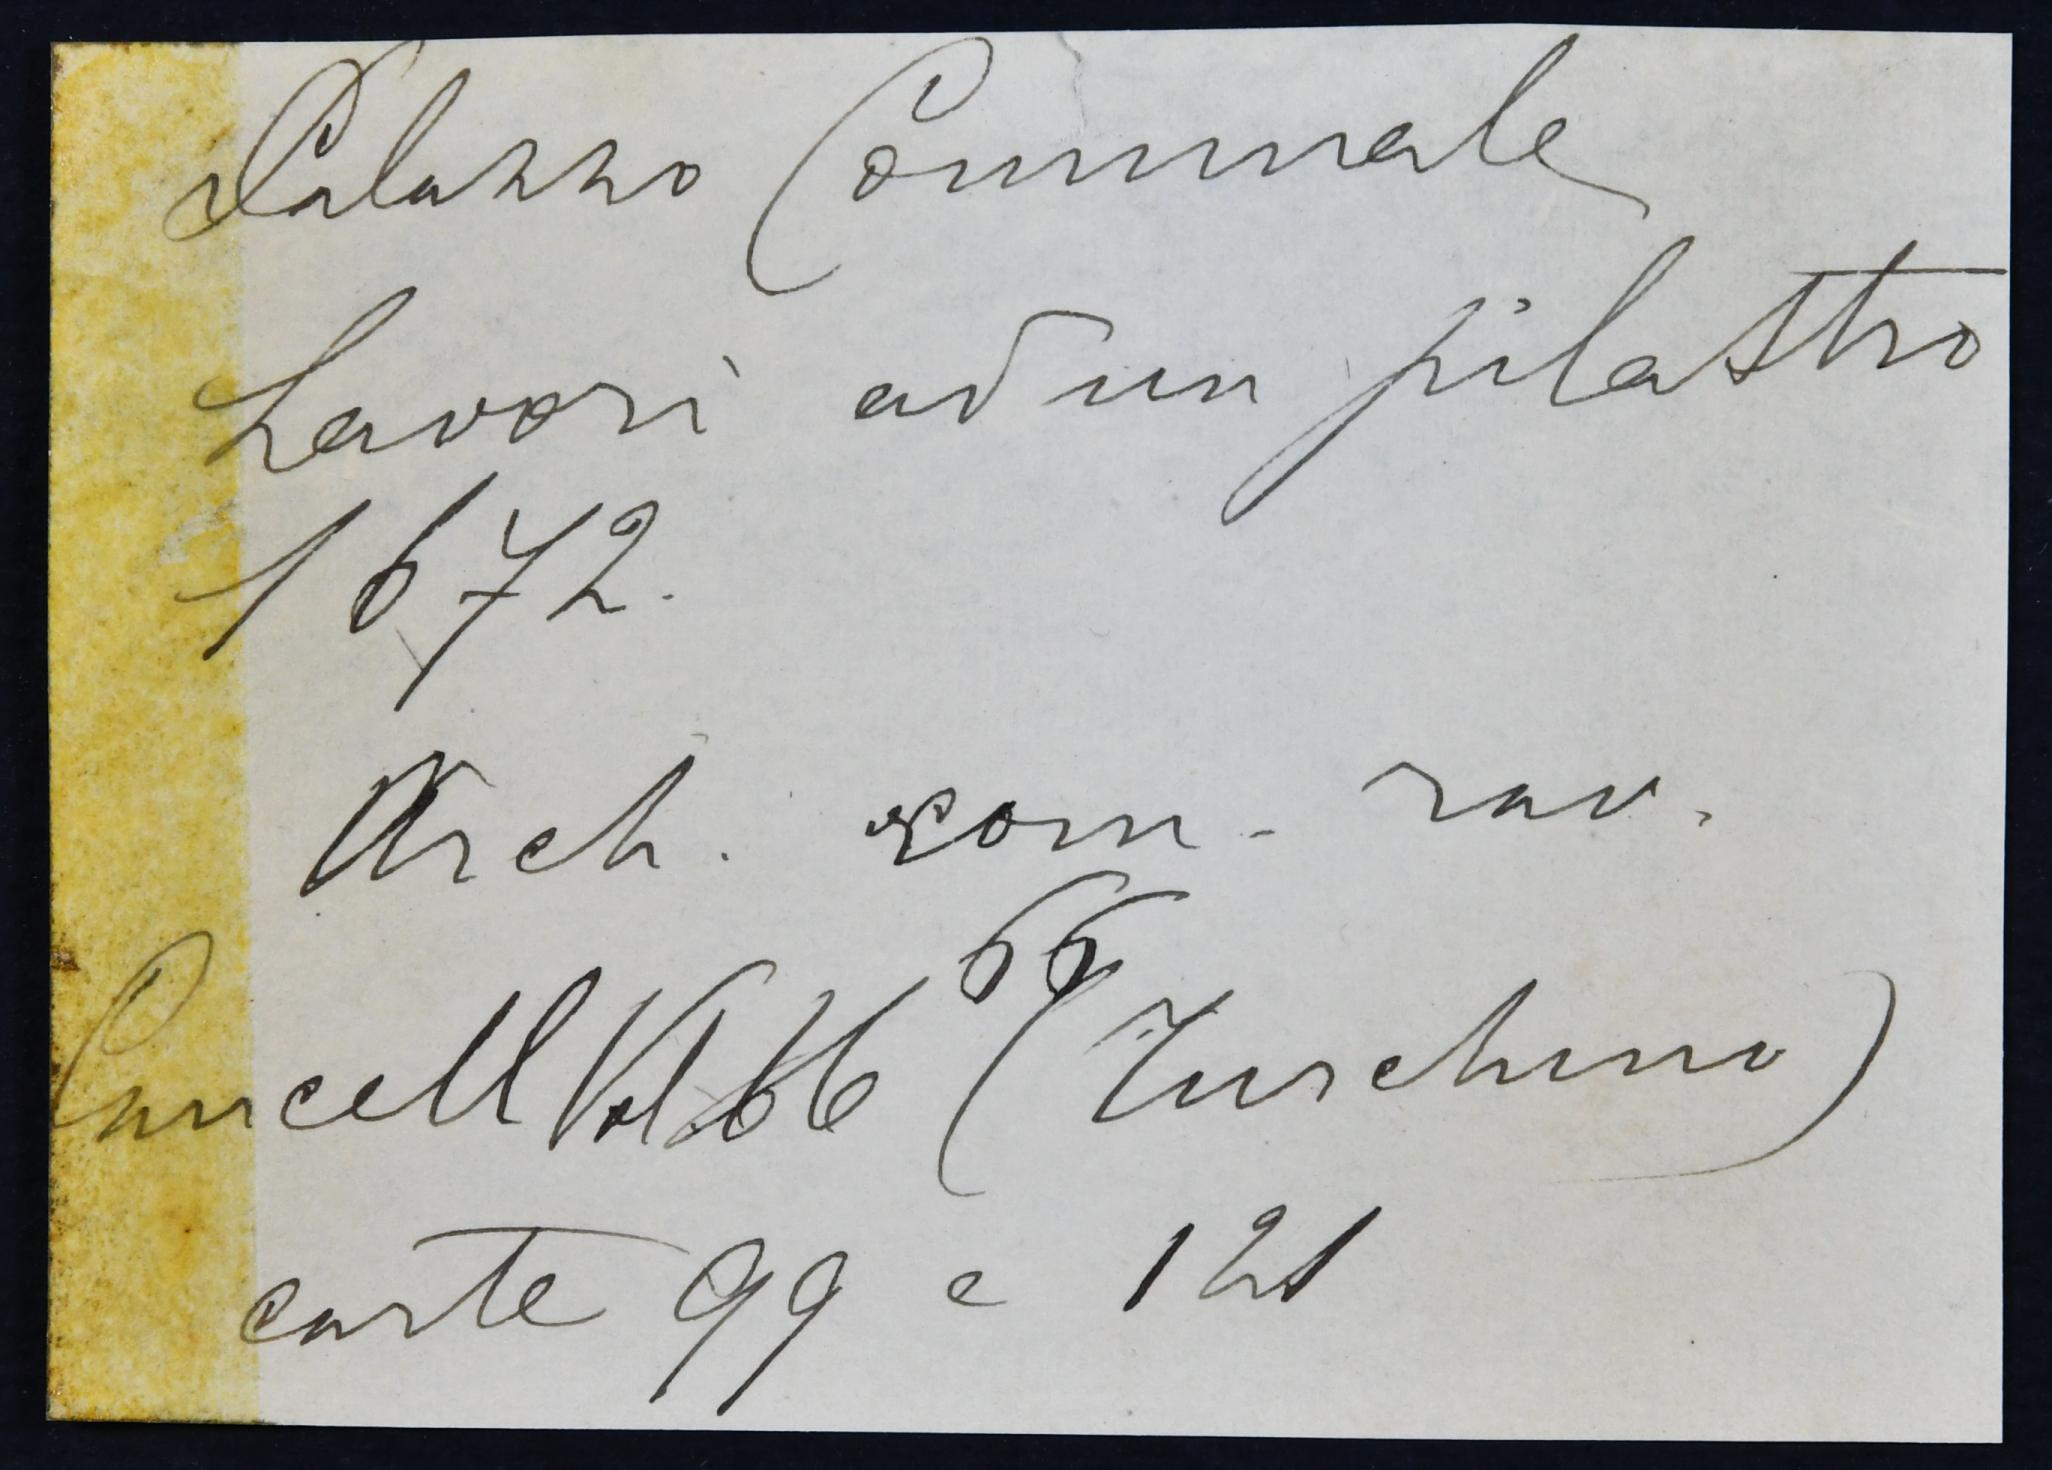 Palazzo Comunale
Lavori ad un pilastro
1672.
Arch. com. rav.
66
Cancell Vol 66 (Turchino)
carte 99 e 121